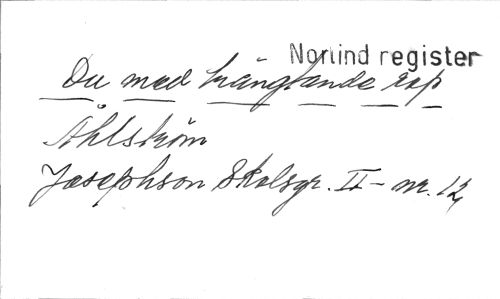 Norlind register
Du med trängtande rop
Åhlström
Josephson Skolsgr. II - nr. 12